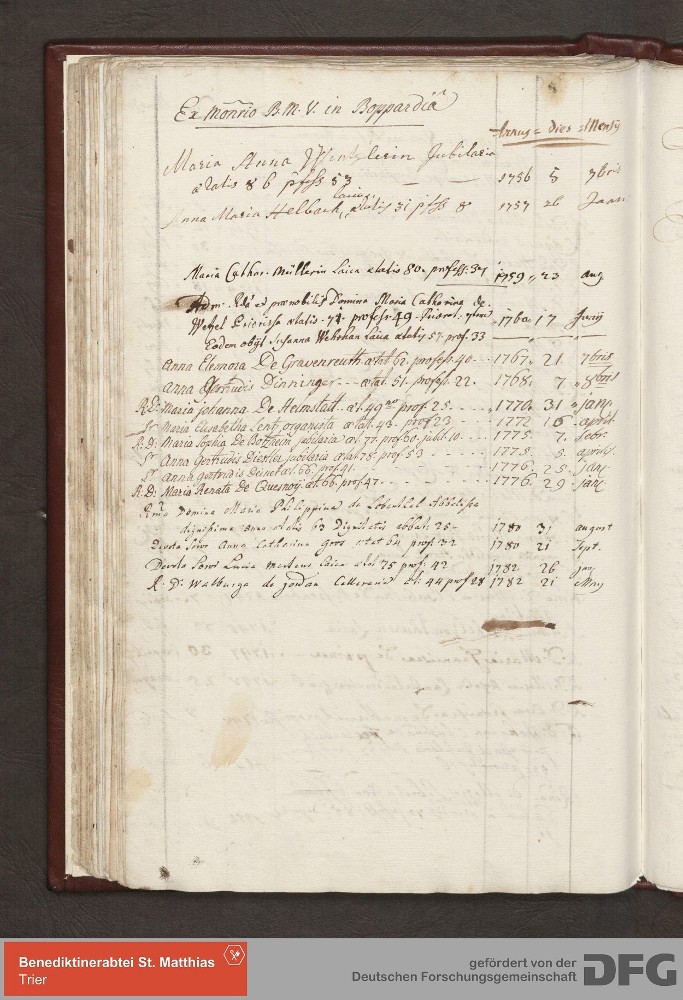 Ex Monrio B. M. V. in Boppardia
Annus = dies = Mensis
Maria Anna Wentzlerin Jubilaria
ætatis 86 pfess 53 — — 1756 5 7bris
laica
Anna Maria Helbach, ætatis 31 pfss 8 1757 26 Jaan
Maria Cathar. Müllerin laica ætatis 80. profess. 37 1759 „ 23 aug
Adm. Rda et prænobilis Domina Maria Catherina de
Wetzel Priorissa ætatis. 71. profess. 49. 1760 17 Junij
Eodem obijt Susanna laica ætatis 57. prof. 33
anna Eleonora De Gravenreuth ætat 62. profess. 40 --- 1767. 21. 7bris
anna Gertrudis Dinninger --- ætat. 51. profess. 22. 1768. 7 „ 8bris
R: D: Maria johanna De Helmstatt. æt. 49 no prof. 25. „1770. 31 „ jan.
Sr Maria Elisabetha Lentz organista ætat. 43. prof 23 1772 16 april.
R. D: Maria Sophia De Bozheim jubilaria æt. 77. prof. 60. jubil. 10. 1775. 7. febr.
Sr Anna Gertrudis jubilaria æt 75. prof 53 1775. 5. aprilis
Sr anna gertrudis æt. 66. prof 41. 1776. 25. jan.
R: D: Maria Renata De Quesnoy æt. 66. prof 47 1776. 29. jan.
Rma Domina Maria Philippina de Abbatissa
dignissima anno ætatis 63 Dignitatis abbat: 25 - 1780 31 august
Devota Soror Anna Catharina groos ætat 64 prof: 32 1780 21 Sept.
Devota Soror Lucia Mertens laica ætat 75 prof: 42 1782 26 jan
R. D: Walburga de jordan Celleraria æt: 44 prof 28 1782 21 May
Benediktinerabtei St. Matthias
Trier
gefördert von der
Deutschen Forschungsgemeinschaft
DFG